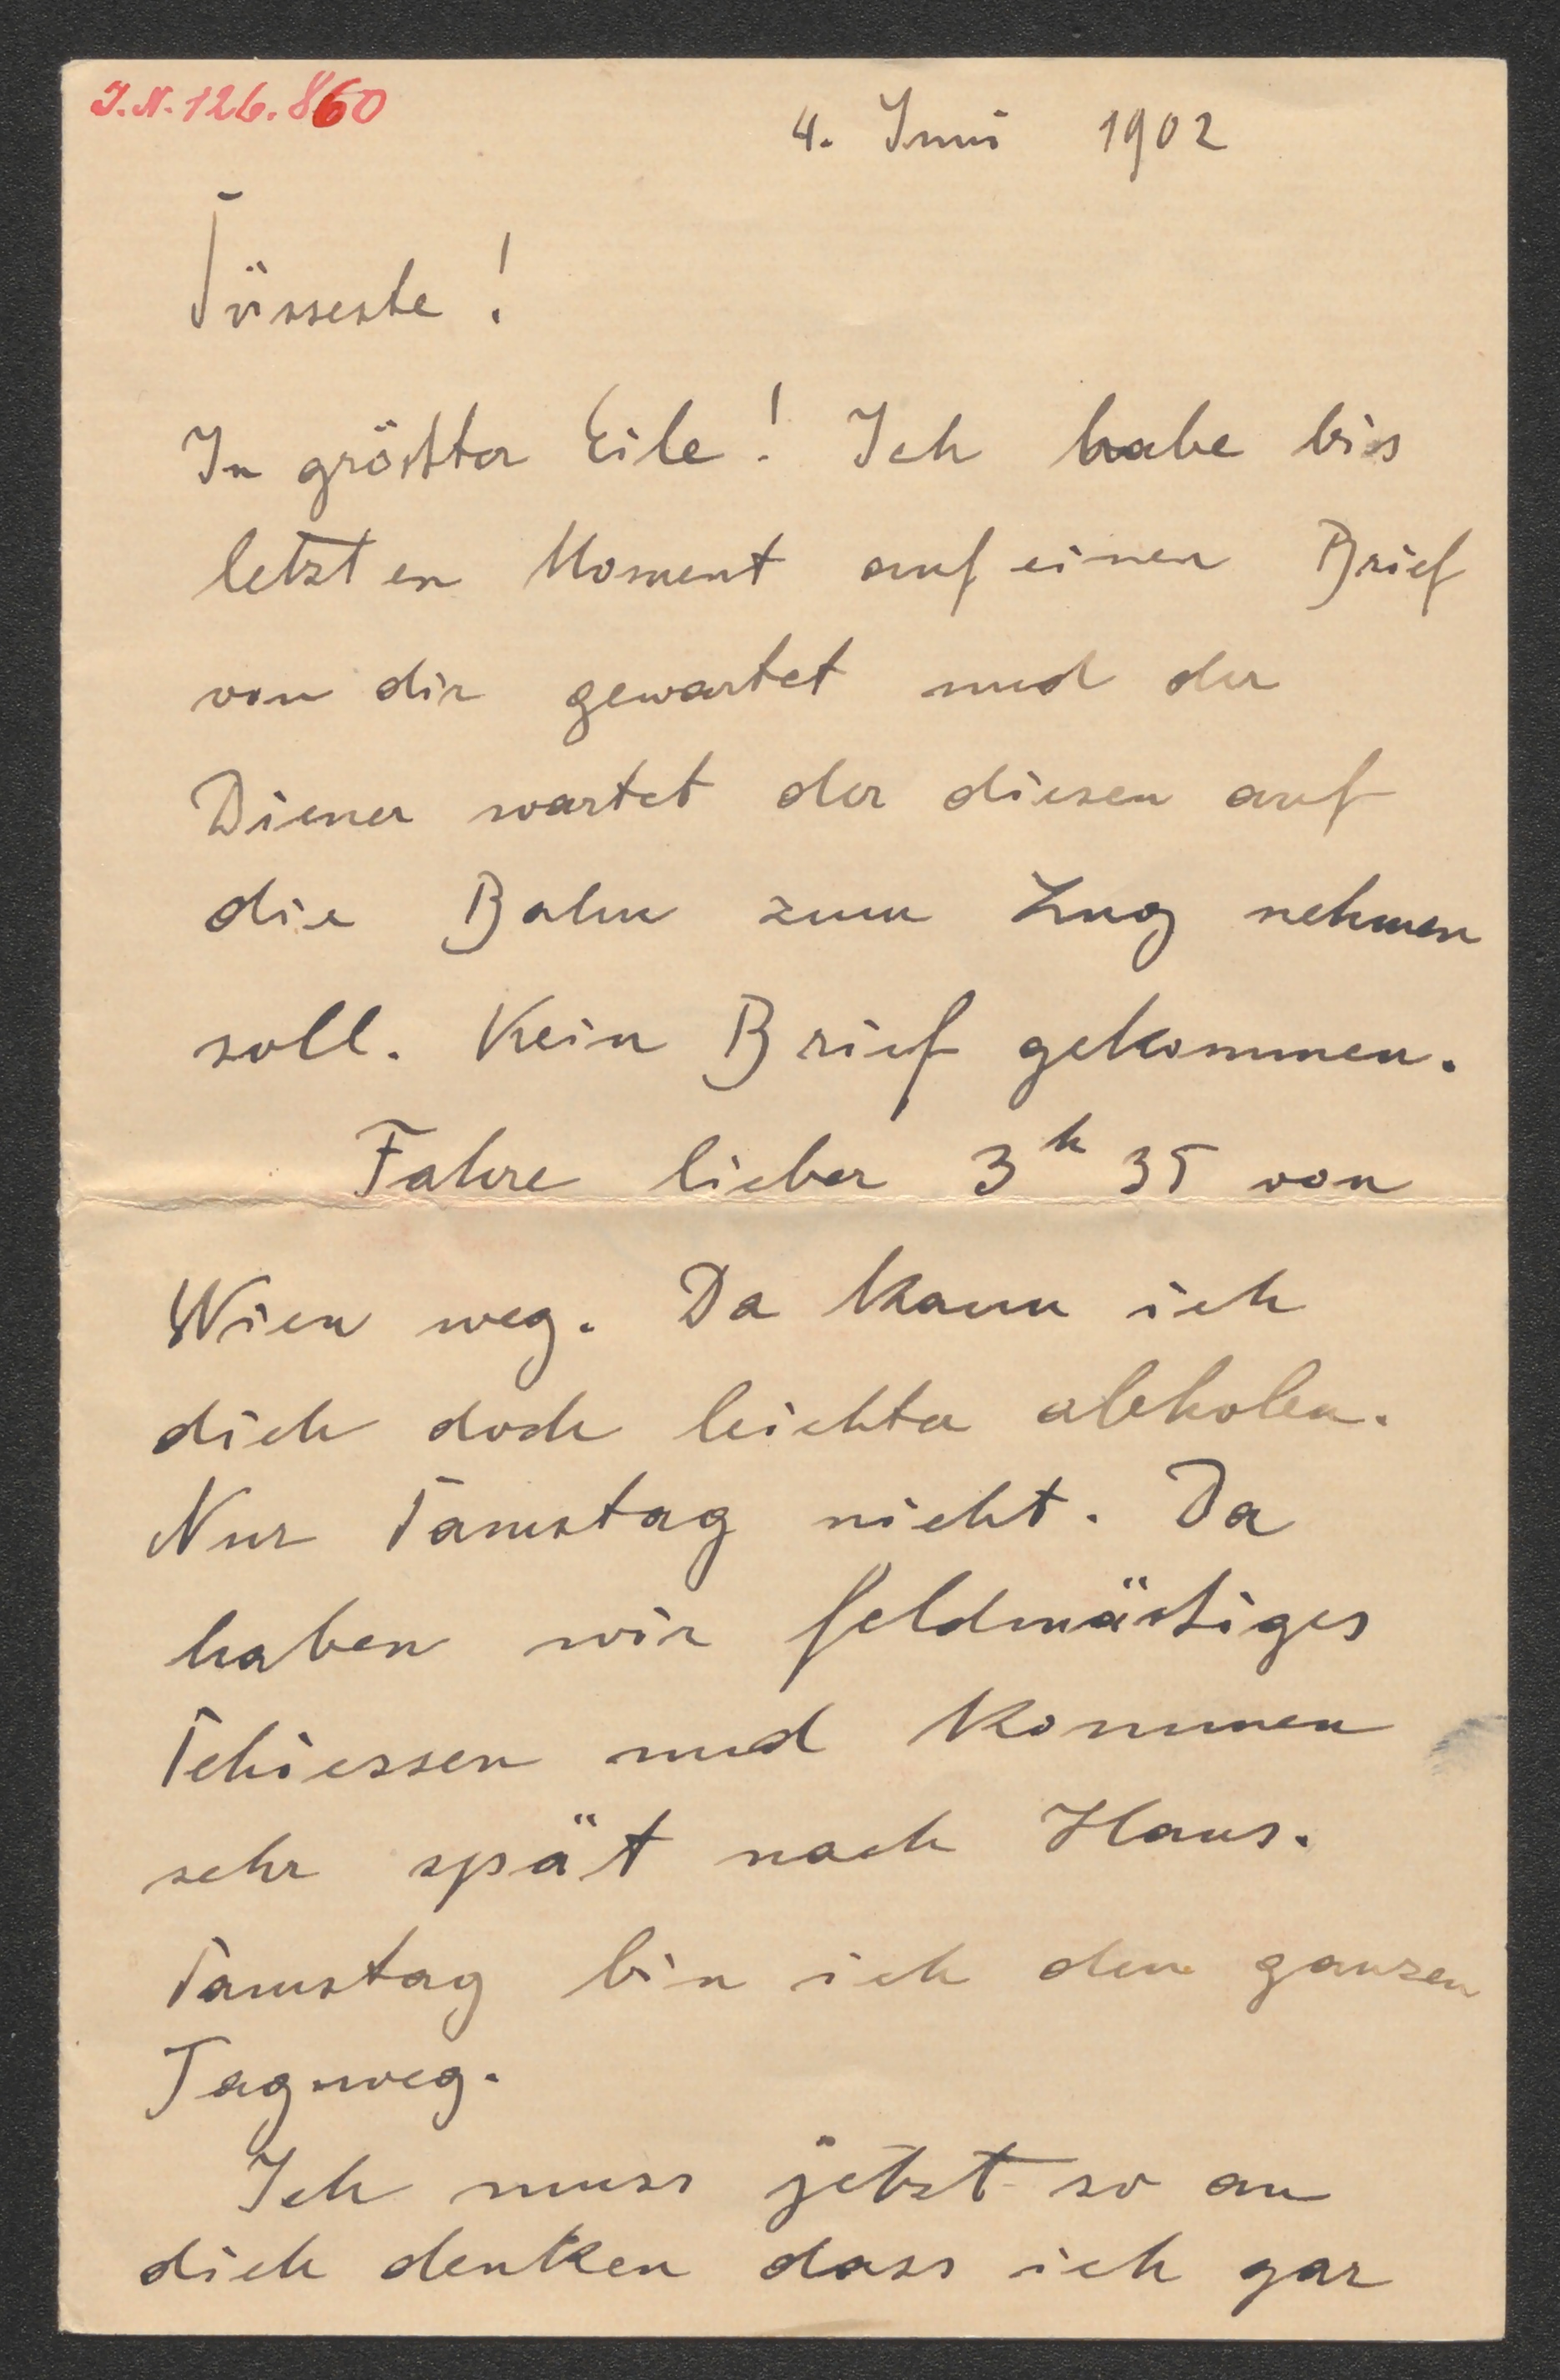 I.N. 126.860
4. Juni 1902
Süsseste!
In grösster Eile! Ich habe bis
letzten Moment auf einen Brief
von dir gewartet und der
Diener wartet der diesen auf
die Bahn zum Zug nehmen
soll. Kein Brief gekommen.
Fahre lieber 3h 35 von
Wien weg. Da kann ich
dich doch leichter abholen.
Nur Samstag nicht. Da
haben wir feldmässiges
Schiessen und kommen
sehr spät nach Haus.
Samstag bin ich den ganzen
Tag weg.
Ich muss jetzt so an
dich denken dass ich gar